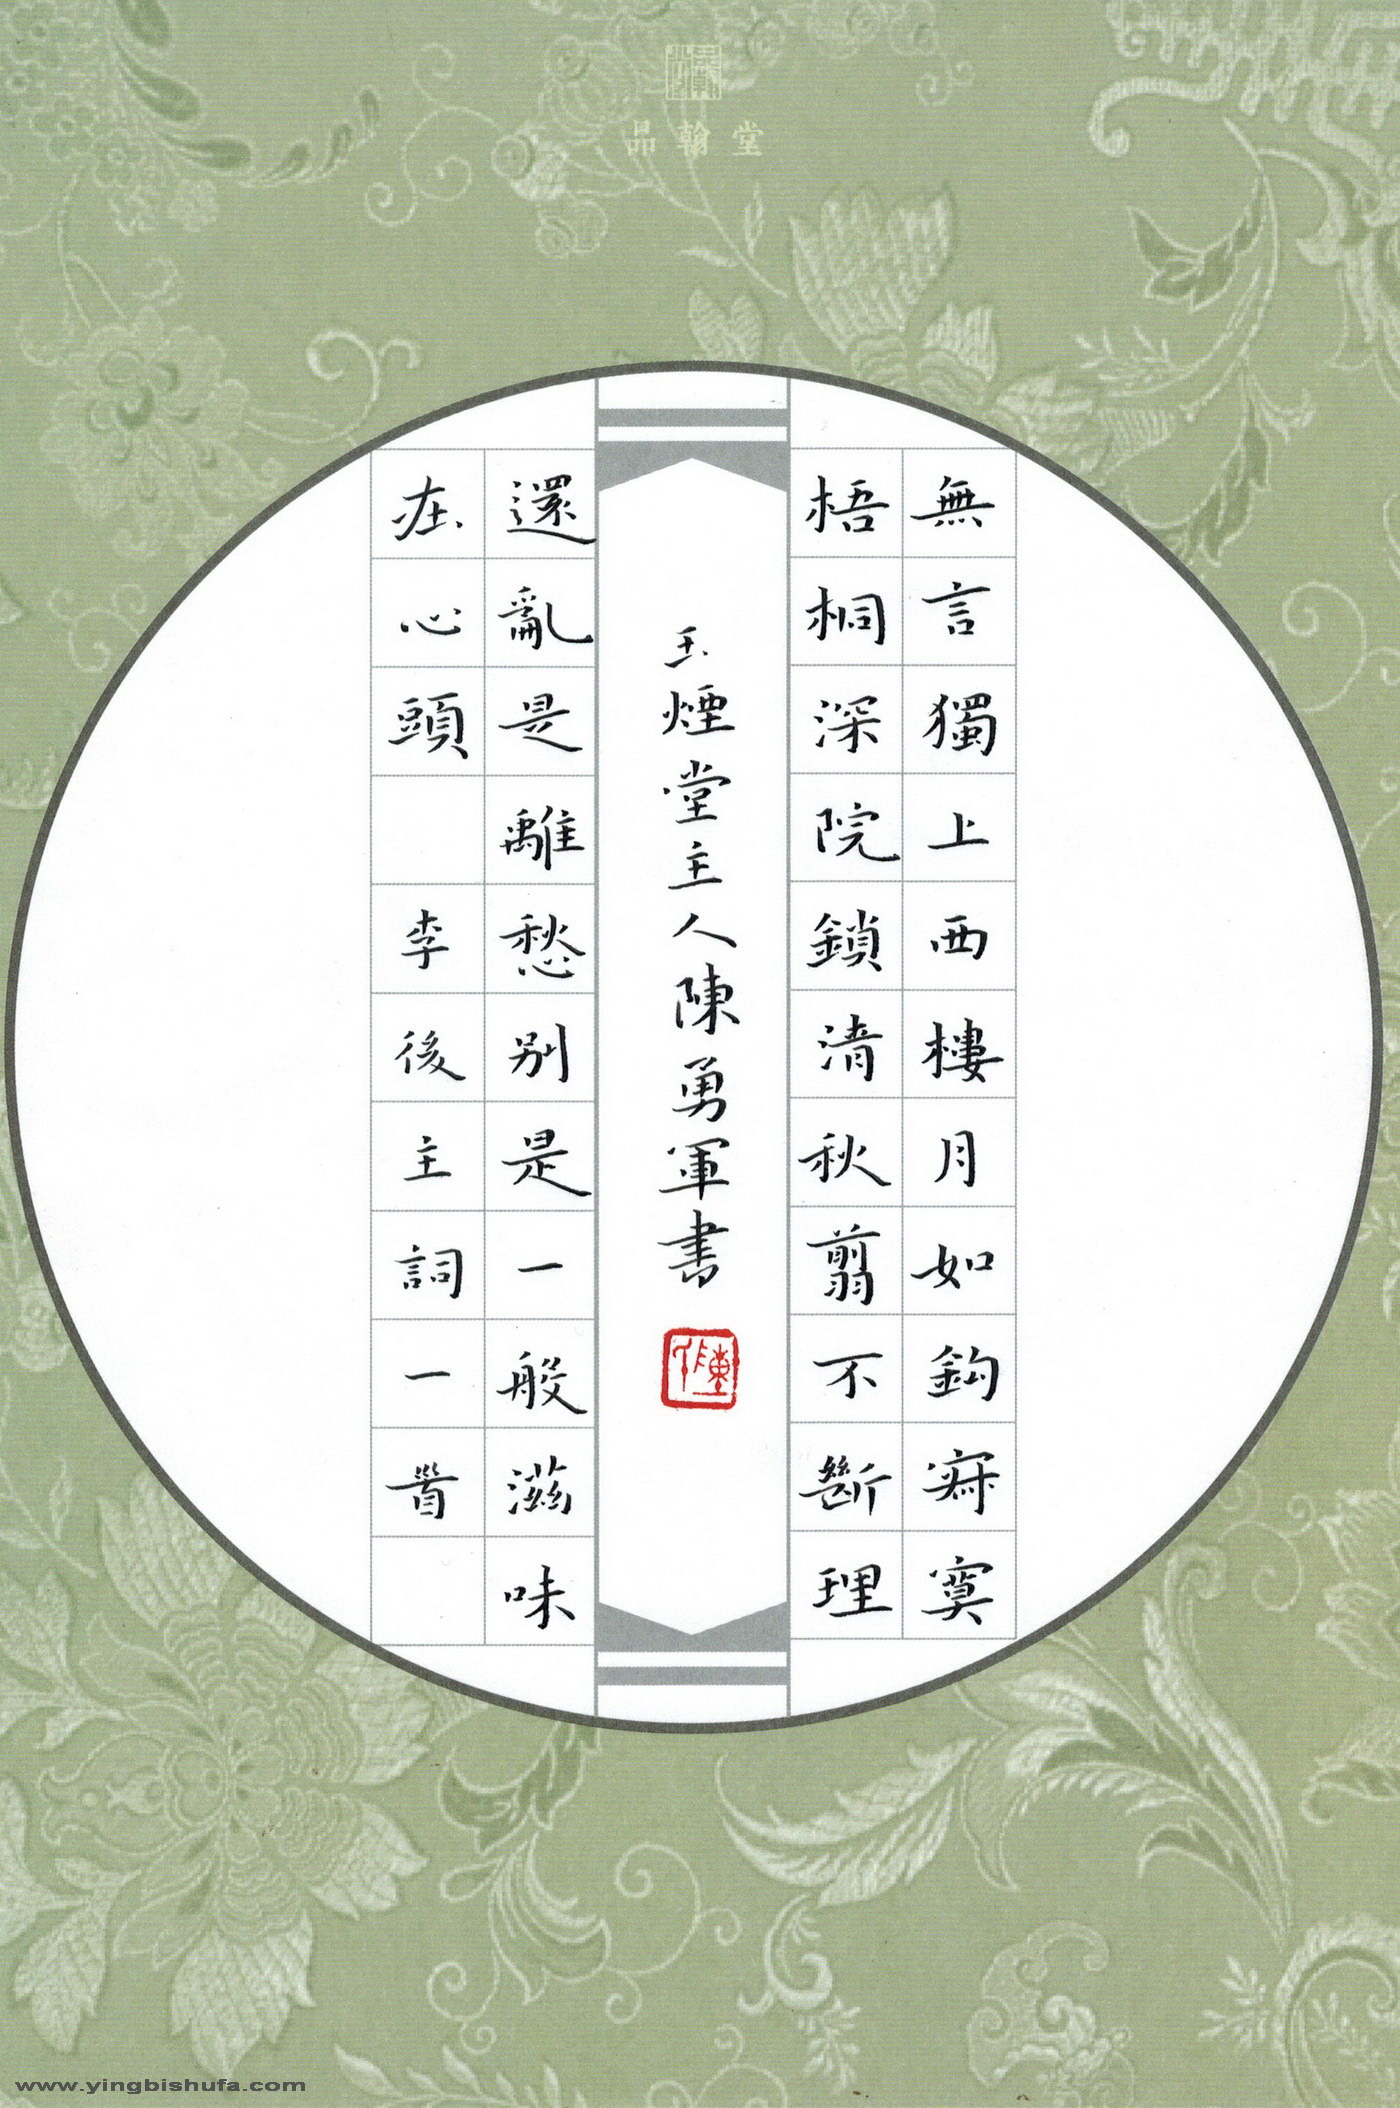 品翰堂
無言獨上西樓月如鈎寂寞
梧桐深院鎖清秋翦不斷理
玉煙堂主人陳勇軍書
還亂是離愁別是一般滋味
在心頭 李後主詞一首
www.yingbishufa.com